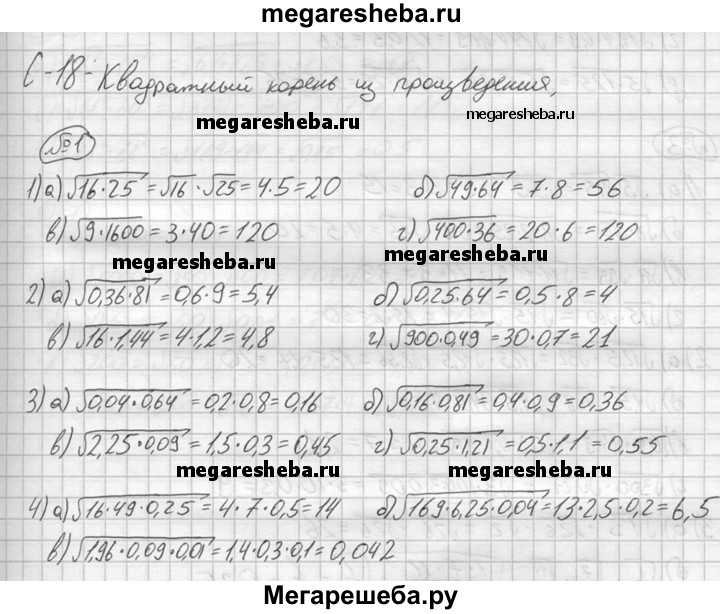 megaresheba.ru
С-18-Квадратный корень из произведения,
megaresheba.ru megaresheba.ru
№1
1) а) √16·25 = √16 · √25 = 4·5 = 20 б) √49·64 = 7·8 = 56
в) √9·1600 = 3·40 = 120 г) √400·36 = 20·6 = 120
megaresheba.ru megaresheba.ru
2) а) √0,36·81 = 0,6·9 = 5,4 б) √0,25·64 = 0,5·8 = 4
в) √16·1,44 = 4·1,2 = 4,8 г) √900·0,49 = 30·0,7 = 21
3) а) √0,04·0,64 = 0,2·0,8 = 0,16 б) √0,16·0,81 = 0,4·0,9 = 0,36
в) √2,25·0,09 = 1,5·0,3 = 0,45 г) √0,25·1,21 = 0,5·1,1 = 0,55
megaresheba.ru megaresheba.ru
4) а) √16·49·0,25 = 4·7·0,5 = 14 б) √169·6,25·0,04 = 13·2,5·0,2 = 6,5
в) √1,96·0,09·0,01 = 1,4·0,3·0,1 = 0,042
Мегарешеба.ру